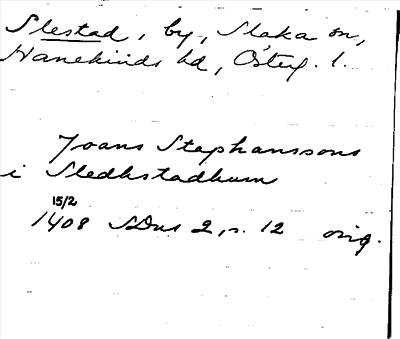 Slestad, by, Slaka sn,
Hanekinds hd, Österg. l.
Joans Stephanssons
i Sledhstadhum
15/2
1408 SDns 2, s. 12 orig.